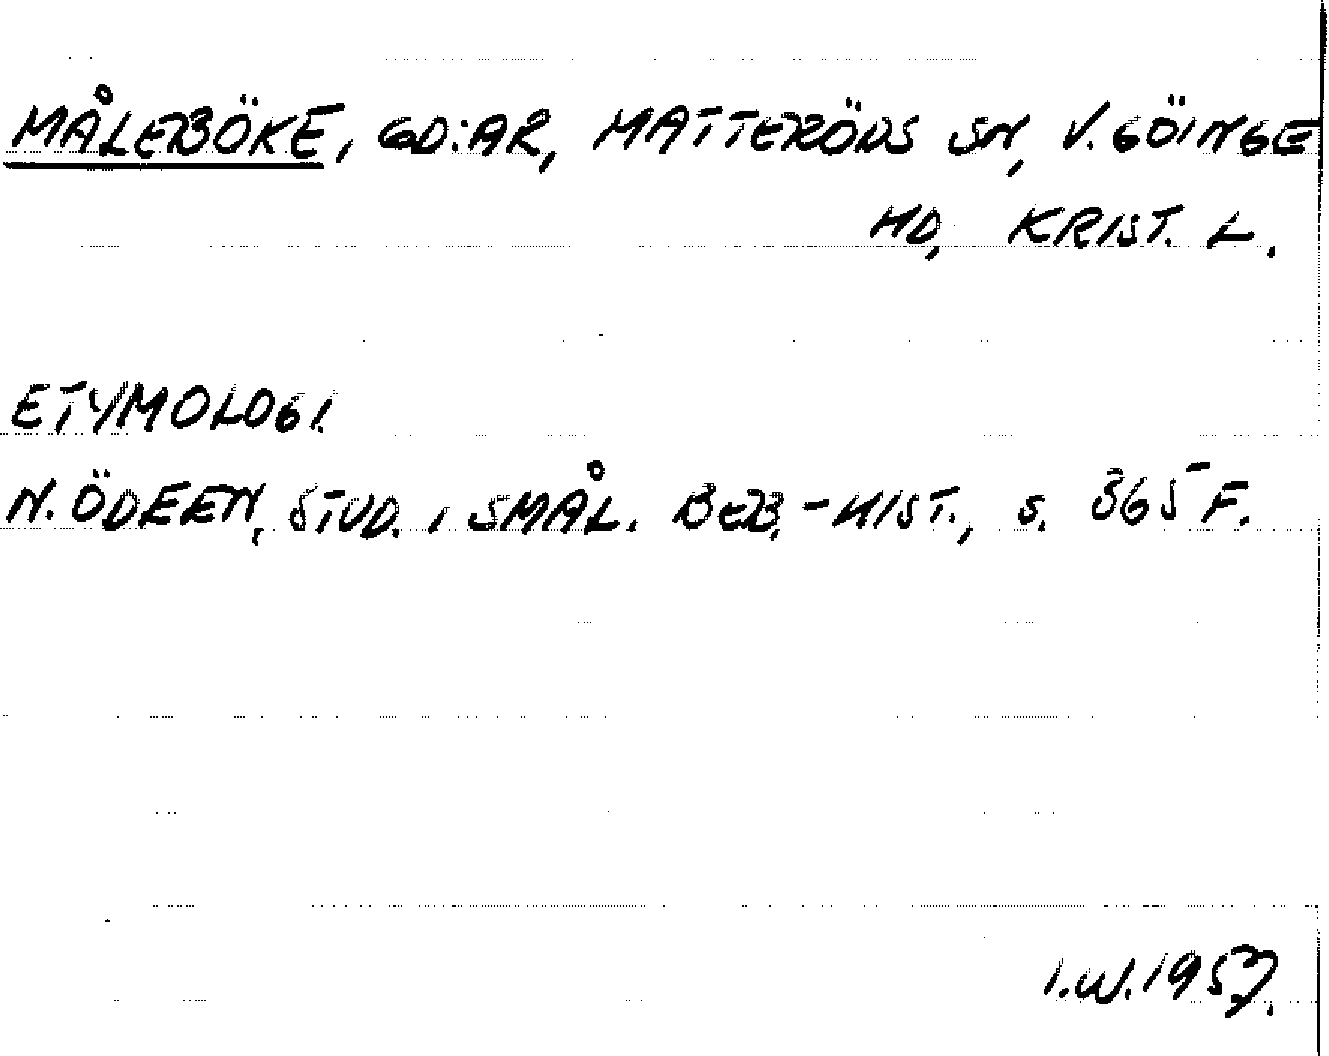 MÅLERBÖKE, GD:AR, MATTERÖDS SN, V. GÖINGE
HD, KRIST. L.
ETYMOLOGI.
N. ÖDEEN, STUD. I SMÅL. BEB.-HIST., S. 365 F.
I.W. 1957.